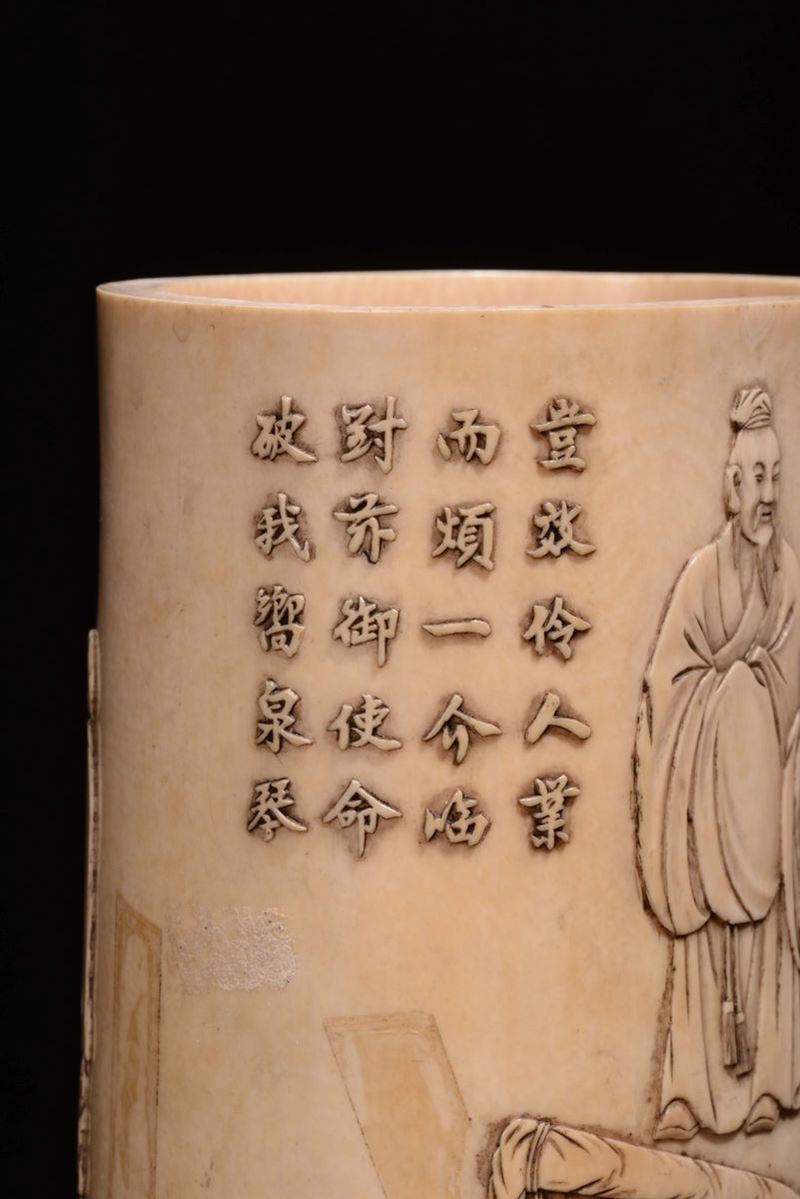 豈效伶人業
而煩一介临
對御使命
破我嚮泉琴